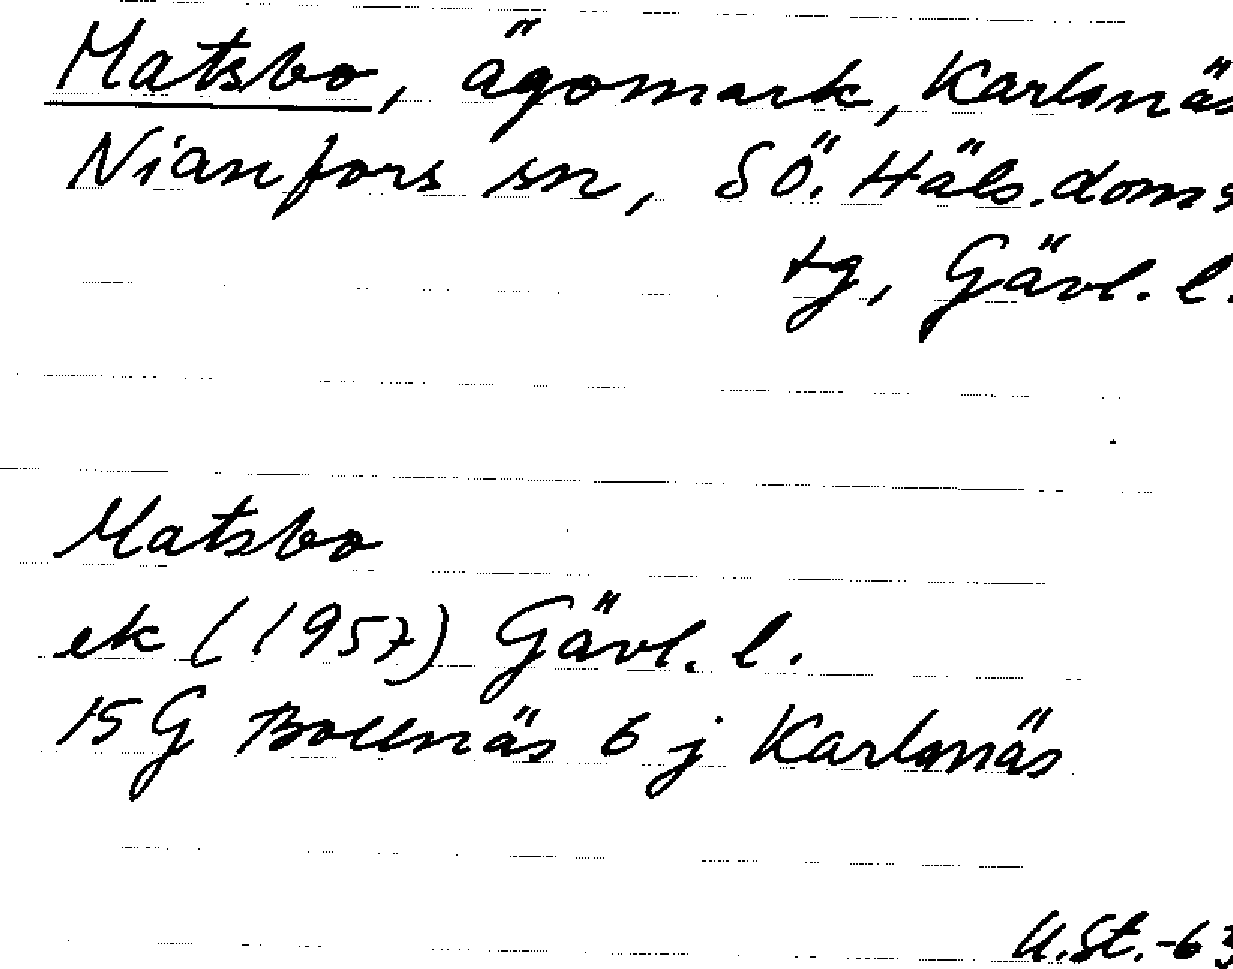 Matsbo, ägomark, Karlsnäs
Nianfors sn, SÖ. Häls. doms
tg, Gävl. l.
Matsbo
ek (1957) Gävl. l.
15 G Bollnäs 6 j Karlsnäs
U.St.-63